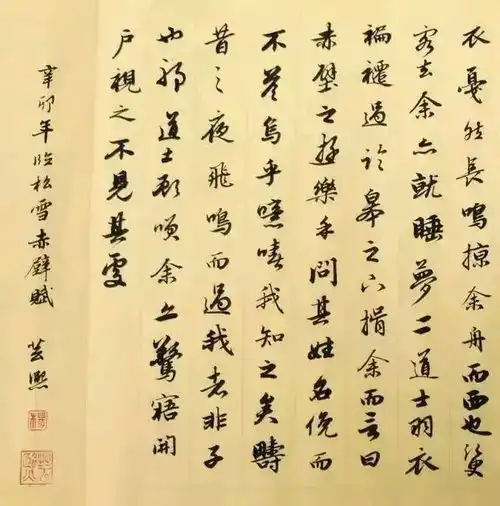 衣戛然長鳴掠余舟而西也須臾
客去余亦就睡夢二道士羽衣
褊褼過臨皋之下揖余而言曰
赤壁之遊樂乎問其姓名俛而
不答烏乎噫嘻我知之矣疇
昔之夜飛鳴而過我者非子
也耶道士顧咲余亦驚寤開
戶視之不見其處
辛卯年臨松雪赤壁賦 芸熙